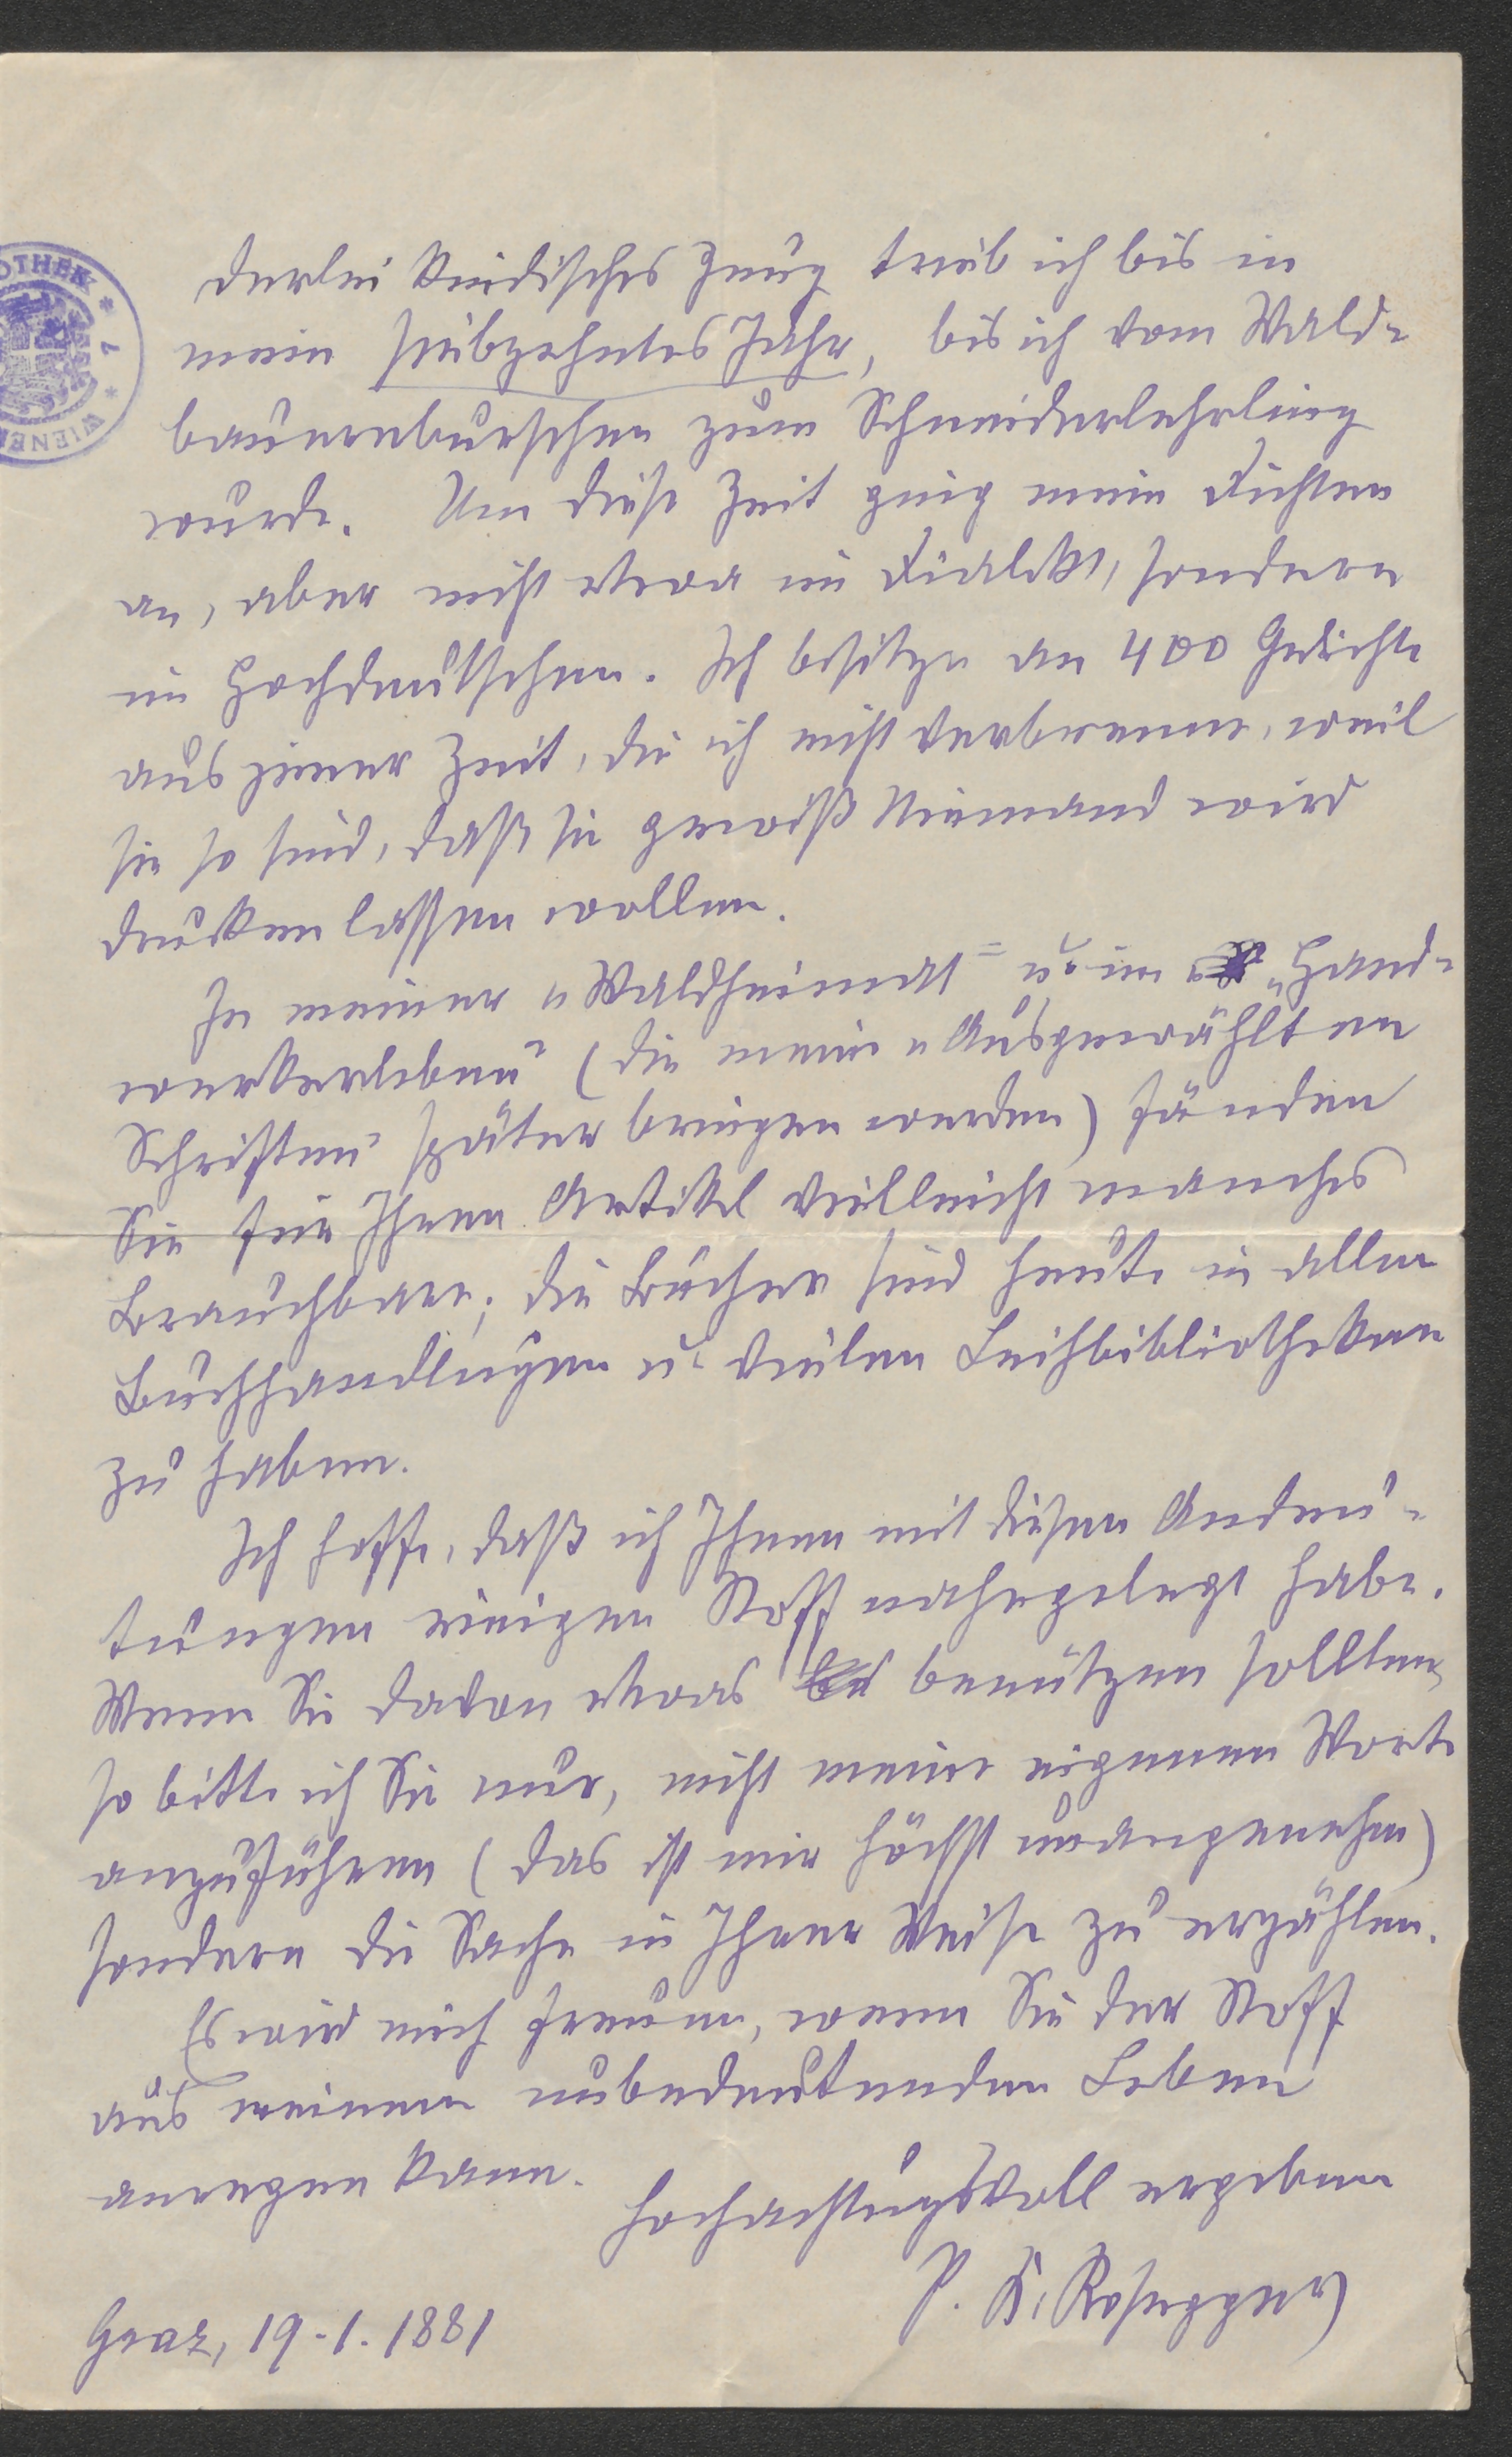 OTHEK * 7 * WIENER
Derlei kindisches Zeug trieb ich bis in
mein siebzehntes Jahr, bis ich vom Wald-
bauernburschen zum Schneiderlehrling
wurde. Um diese Zeit ging mein Dichten
an, aber nicht etwa im Dialekt, sondern
im Hochdeutschen. Ich besitze an 400 Gedichte
aus jener Zeit, die ich nicht verbrenne, weil
sie so sind, daß sie gewiß Niemand wird
drucken lassen wollen.
In meiner „Waldheimat" u. im „Hand-
werkerleben" (die meine „Ausgewählten
Schriften" später bringen werden) fänden
Sie für Ihren Artikel vielleicht manches
Brauchbare; die Bücher sind heute in allen
Buchhandlungen u. vielen Leihbibliotheken
zu haben.
Ich hoffe, daß ich Ihnen mit diesen Andeu-
tungen einigen Stoff nahegelegt habe.
Wenn Sie davon etwas benützen sollten,
so bitte ich Sie nur, nicht meine eigenen Worte
anzuführen (das ist mir höchst unangenehm)
sondern die Sache in Ihrer Weise zu erzählen.
Es wird mich freuen, wenn Sie der Stoff
aus meinem unbedeutenden Leben
anregen kann.
Hochachtungsvoll ergeben
P. K. Rosegger
Graz, 19.1.1881